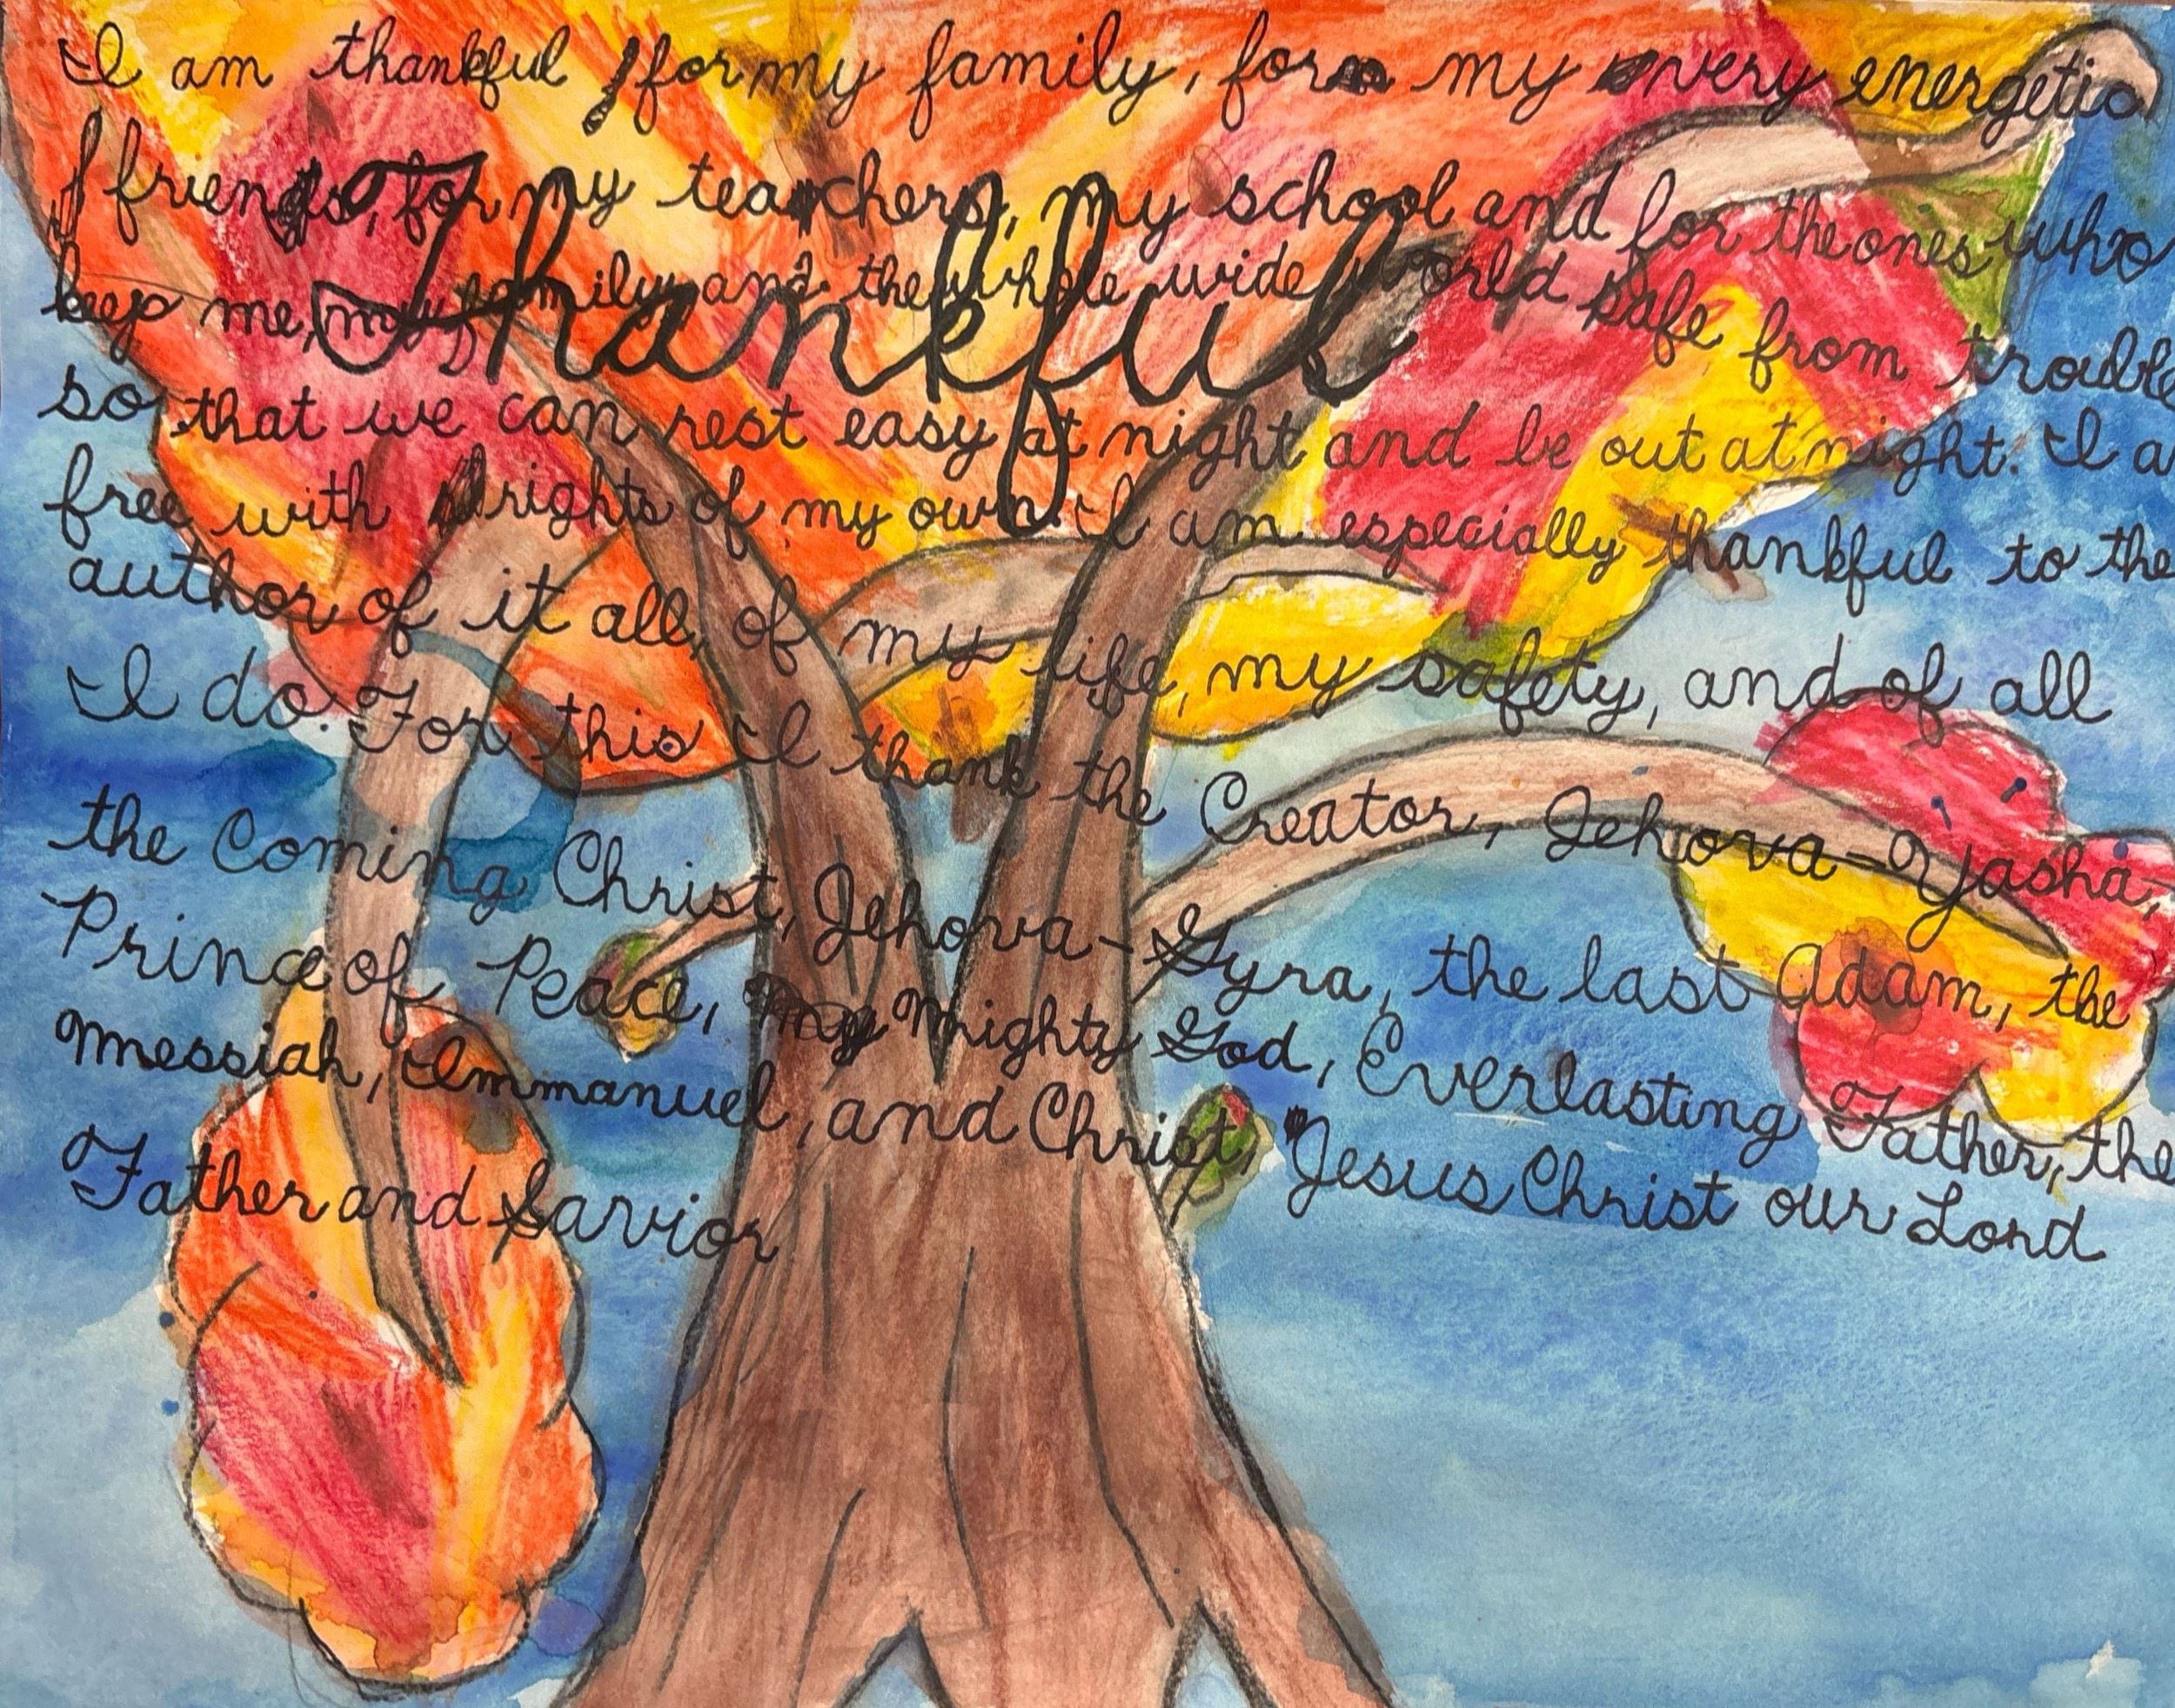 I am thankful for my family, for my very energetic
friends, for my teachers, my school and for the ones who
Thankful
keep me, my family and the whole wide world safe from trouble
so that we can rest easy at night and be out at night. I a
free with rights of my own. I am especially thankful to the
author of it all, of my life, my safety, and of all
I do. For this I thank the Creator, Jehova-Yasha,
the Coming Christ, Jehova-Gyra, the last Adam, the
Prince of Peace, my Mighty God, Everlasting Father, the
Messiah, Immanuel, and Christ, Jesus Christ our Lord
Father and Savior